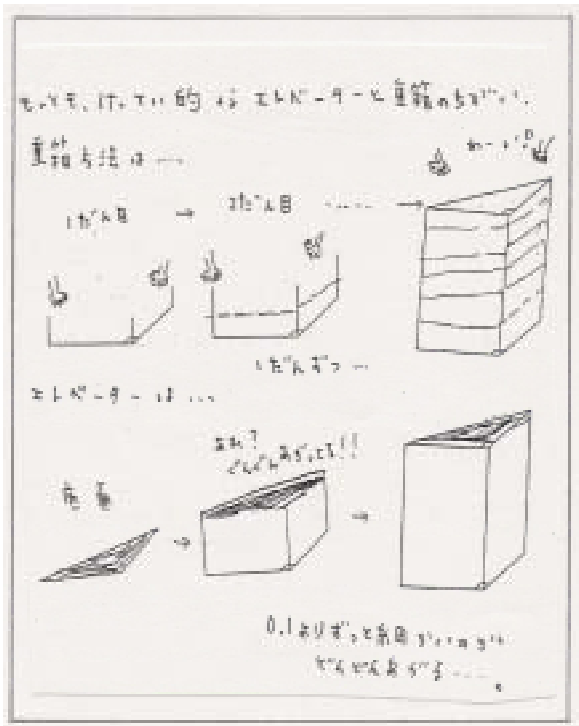 もっとも、けってい的なエレベーターと重箱のちがい、
重箱方法は…
わーい!!
1だん目 → 2だん目 …… →
1だんずつ…
エレベーターは…
あれ?
ぐんぐんあがってる!!
底面 → →
0.1よりずっと細かいのが
どんどんあがる……。